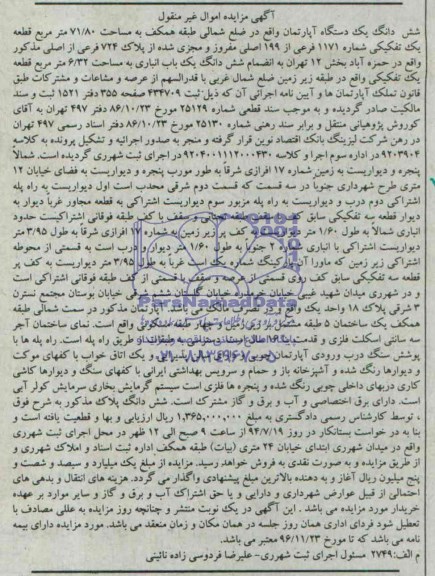 آگهی مزایده اموال غیر منقول
شش دانگ یک دستگاه آپارتمان واقع در ضلع شمالی طبقه همکف به مساحت ۷۱/۸۰ متر مربع قطعه
یک تفکیکی شماره ۱۱۷۱ فرعی از ۱۹۹ اصلی مفروز و مجزی شده از پلاک ۷۲۴ فرعی از اصلی مذکور
واقع در حمزه آباد بخش ۱۲ تهران به انضمام شش دانگ یک باب انباری به مساحت ۶/۳۲ متر مربع قطعه
یک تفکیکی واقع در طبقه زیر زمین ضلع شمال غربی با قدرالسهم از عرصه و مشاعات و مشترکات طبق
قانون تملک آپارتمان ها و آیین نامه اجرائی آن که ذیل ثبت ۴۳۴۷۰۹ صفحه ۳۵۵ دفتر ۱۵۲۱ ثبت و سند
مالکیت صادر گردیده و به موجب سند قطعی شماره ۲۵۱۲۹ مورخ ۸۶/۱۰/۲۳ دفتر ۴۹۷ تهران به آقای
کوروش پژوهیانی منتقل و برابر سند رهنی شماره ۲۵۱۳۰ مورخ ۸۶/۱۰/۲۳ دفتر اسناد رسمی ۴۹۷ تهران
در رهن شرکت لیزینگ بانک اقتصاد نوین قرار گرفته و منجر به صدور اجرائیه و تشکیل پرونده به کلاسه
۹۲۰۳۹۰۴ در اداره سوم اجرا و کلاسه ۹۲۰۴۰۰۱۱۱۲۰۰۰۴۳۰ در اجرای ثبت شهرری گردیده است. شمالاً
پنجره و دیواریست به زمین شماره ۱۷ افرازی شرقاً به طور مورب پنجره و دیواریست به فضای خیابان ۱۲
متری طرح شهرداری جنوباً در سه قسمت که قسمت دوم شرقی محدب است اول دیواریست به راه پله
اشتراکی دوم درب و دیواریست به راه پله مزبور سوم دیواریست اشتراکی به قطعه مجاور غرباً دیوار به
دیوار قطعه سه تفکیکی سابق کف با سقف طبقه تحتانی و سقف با کف طبقه فوقانی اشتراکیست حدود
انباری شمالاً به طول ۱/۶۰ متر کف زیر زمین به شماره افرازی شرقاً به طول ۳/۹۵ متر
دیواریست اشتراکی با انباری ۲ جنوباً به طول ۱/۶۰ متر دیوار و درب است به قسمتی از محوطه
اشتراکی زیر زمین که ماورا آن پارکینگ شماره یک است غرباً به طول ۳/۹۵ متر دیواریست به کف پر
قطعه سه تفکیکی سابق کف روی قسمتی از عرصه و سقف با قسمتی از کف طبقه فوقانی اشتراکی است
و در شهرری میدان شهید غیبی خیابان گلستان ششم شرقی خیابان بوستان مجتمع نسترن
۳ شرقی پلاک ۱۸ واحد یک واقع و در تصرف مالک می باشد. آپارتمان مذکور در سمت شمالی طبقه
همکف یک ساختمان ۵ طبقه چهار طبقه مسکونی واقع است. نمای ساختمان آجر
سه سانتی اسکلت فلزی و قدمت از طریق راه پله است. راه پله ها با
پوشش سنگ درب ورودی آپارتمان چوبی و یک اتاق خواب با کفهای موکت
و دیوارها رنگ شده و آشپزخانه باز و حمام و سرویس بهداشتی ایرانی با کفهای سنگ و دیوارها کاشی
کاری دربهای داخلی چوبی رنگ شده و پنجره ها فلزی است سیستم گرمایش بخاری سرمایش کولر آبی
است. دارای برق اختصاصی و آب و برق و گاز مشترک است. شش دانگ پلاک مذکور به شرح فوق
توسط کارشناس رسمی دادگستری به مبلغ ۱,۳۶۵,۰۰۰,۰۰۰ ریال ارزیابی و بها و قطعیت یافته است و
بنا به در خواست بستانکار در روز ۹۴/۷/۱۹ از ساعت ۹ صبح الی ۱۲ ظهر در محل اجرای ثبت شهرری
واقع در میدان شهرری ابتدای خیابان ۲۴ متری (بیات) طبقه همکف اداره ثبت اسناد و املاک شهرری و
از طریق مزایده و به صورت نقدی به فروش خواهد رسید. مزایده از مبلغ یک میلیارد و سیصد و شصت و
پنج میلیون ریال آغاز و به دهنده بالاترین مبلغ پیشنهادی واگذار می گردد. هزینه های انتقال و بدهی های
احتمالی از قبیل عوارض شهرداری و دارایی و یا حق اشتراک آب و برق و گاز و سایر موارد بر عهده
خریدار مورد مزایده می باشد . این آگهی در یک نوبت منتشر و چنانچه روز مزایده به عللی مصادف با
تعطیل شود فردای اداری همان روز جلسه در همان مکان و زمان منعقد می باشد. مورد مزایده دارای بیمه
نامه می باشد که تا مورخ ۹۶/۱۱/۲۳ معتبر می باشد.
م الف: ۲۷۴۹ مسئول اجرای ثبت شهرری-علیرضا فردوسی زاده نائینی
ParsNamadData